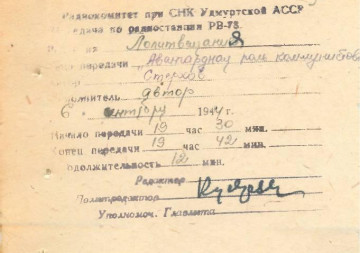 Радиокомитет при СНК Удмуртской АССР
передача по радиостанции РВ-78.
Политвещания
передачи Авангардная роль коммунистов
Стерхов
автор
6 1944 г.
Начало передачи 19 час 30 мин.
Конец передачи 19 час 42 мин.
одолжительность 12 мин.
Редактор
Политредактор
Уполномоч. Главлита